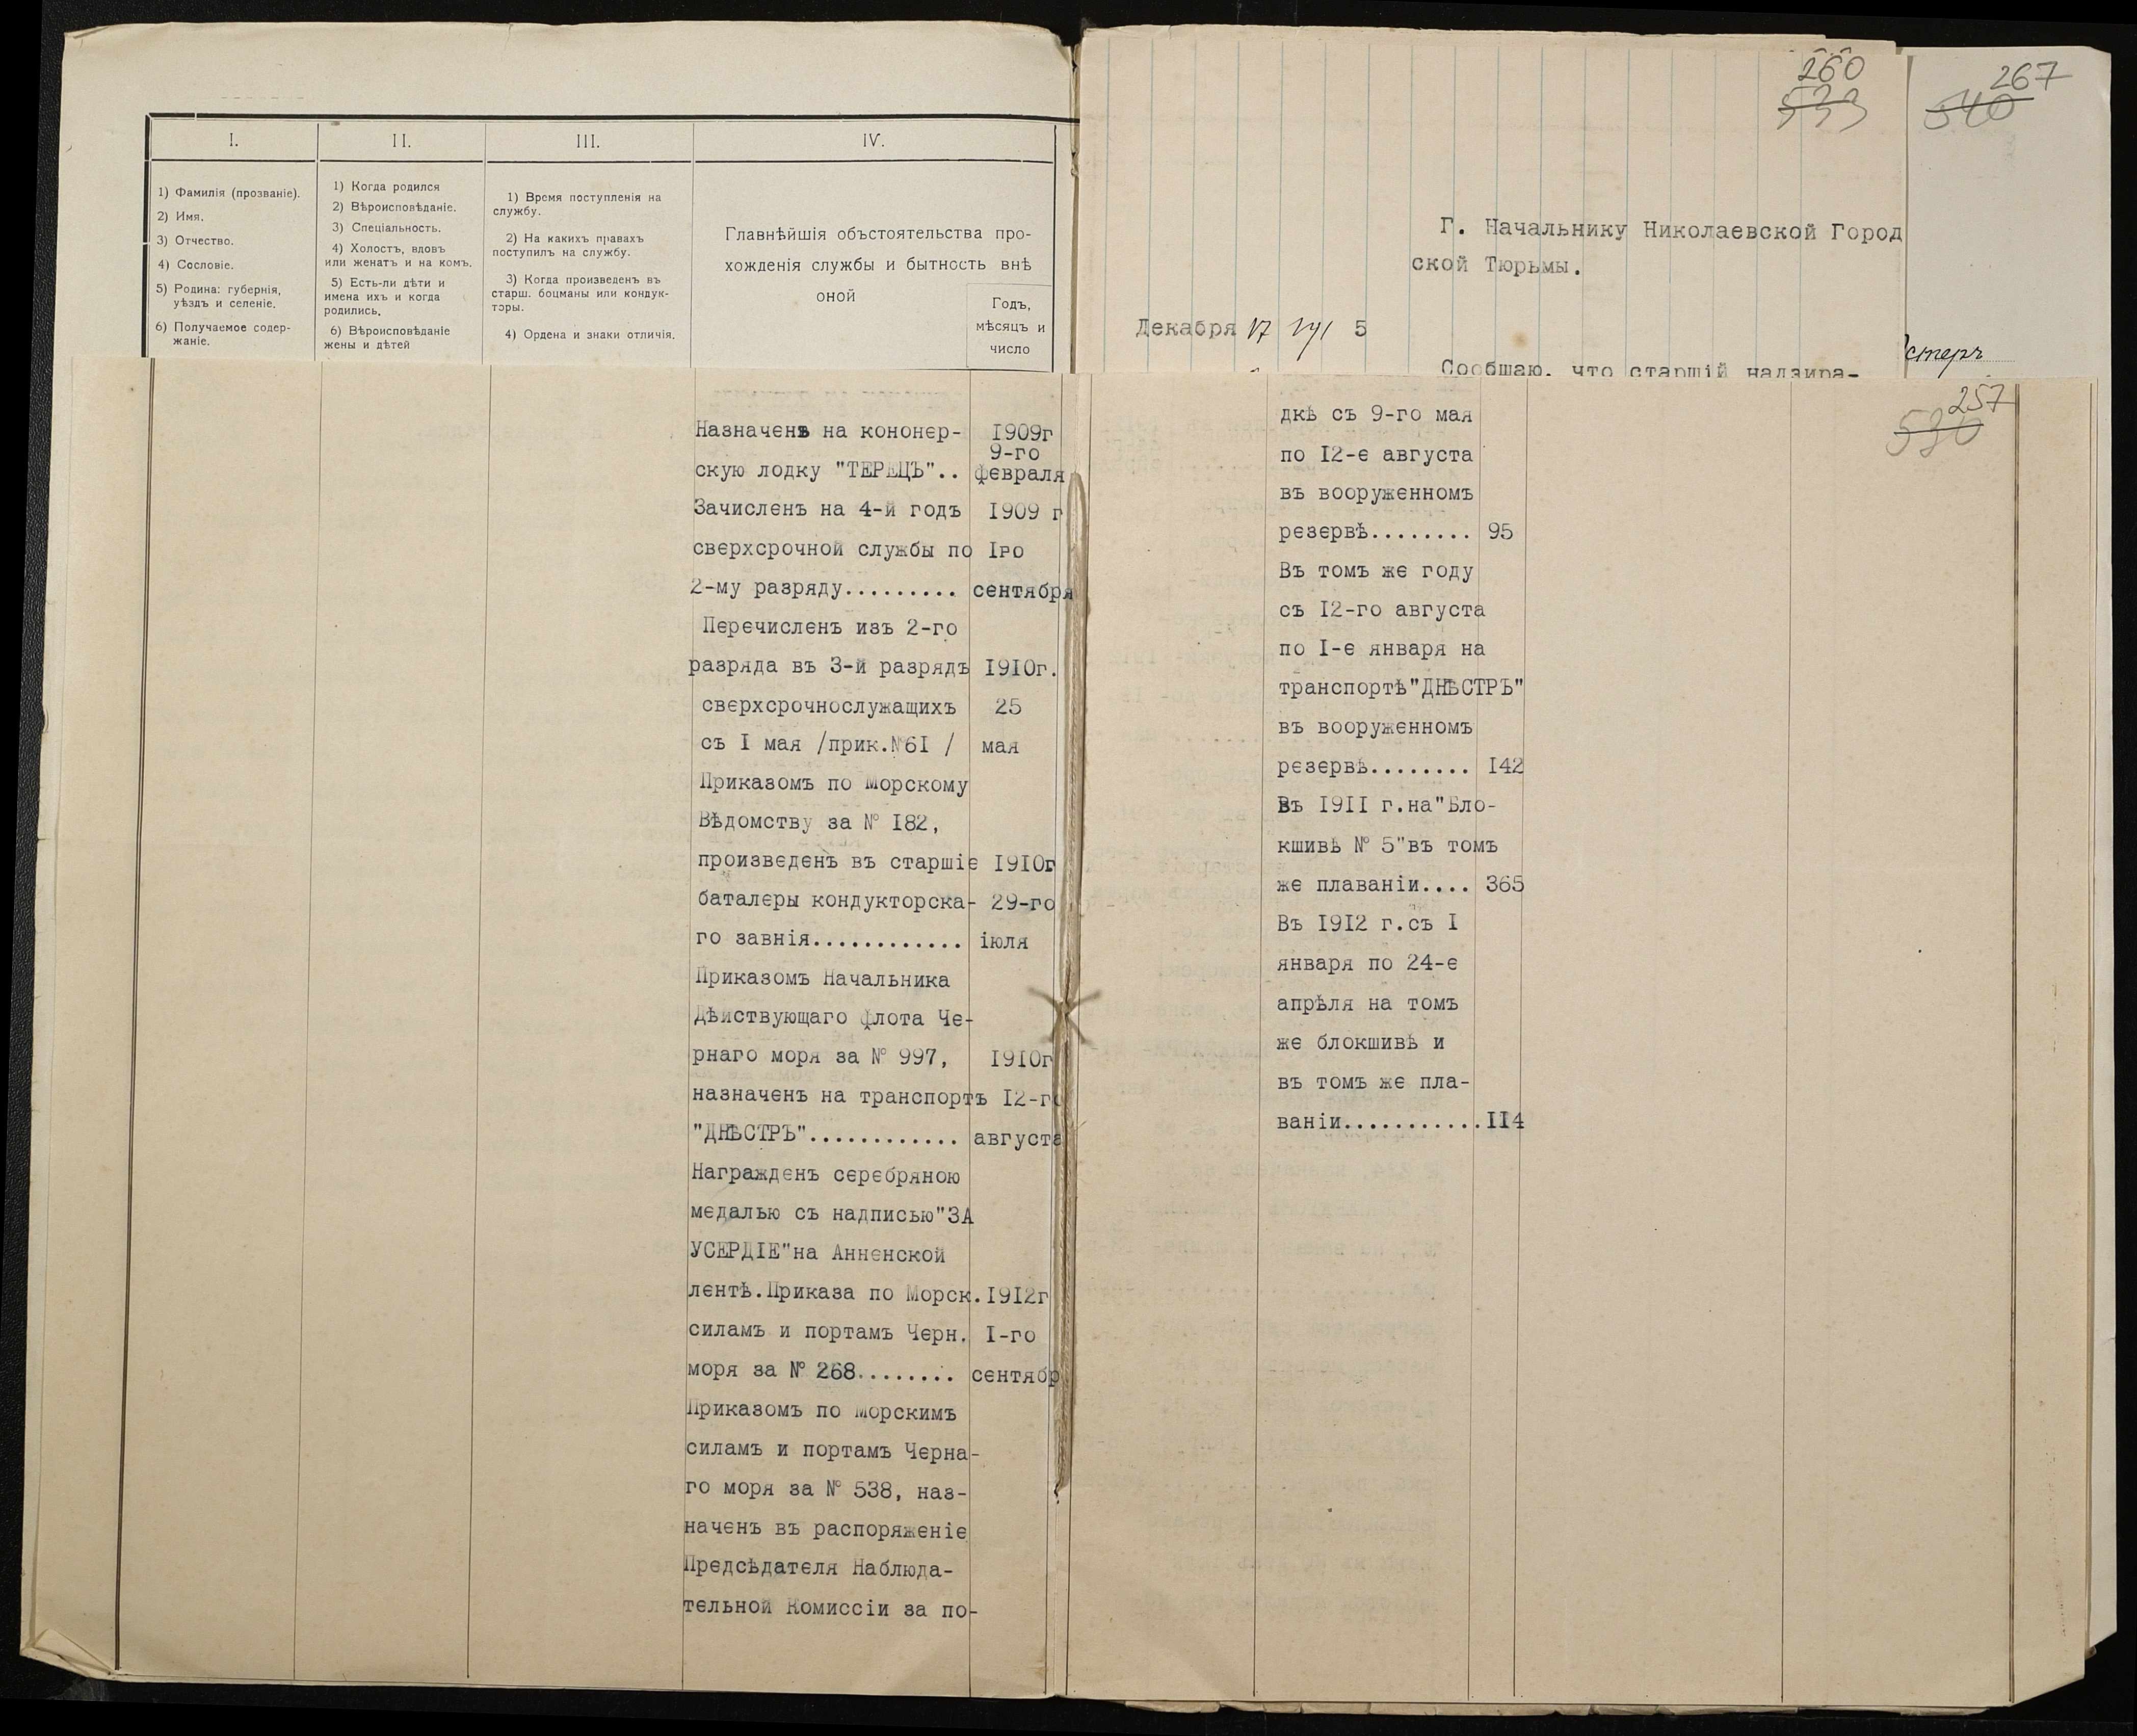 I.
II.
III.
IV.
1) Фамилія (прозваніе).
2) Имя.
3) Отчество.
4) Сословіе.
5) Родина: губернія,
уѣздъ и селеніе.
6) Получаемое содер-
жаніе.
1) Когда родился
2) Вѣроисповѣданіе.
3) Спеціальность.
4) Холостъ, вдовъ
или женатъ и на комъ.
5) Есть-ли дѣти и
имена ихъ и когда
родились.
6) Вѣроисповѣданіе
жены и дѣтей
1) Время поступленія на
службу.
2) На какихъ правахъ
поступилъ на службу.
3) Когда произведенъ въ
старш. боцманы или кондук-
торы.
4) Ордена и знаки отличія.
Главнѣйшія объстоятельства про-
хожденія службы и бытность внѣ
оной
Годъ,
мѣсяцъ и
число
Назначенъ на кононер- 1909г
9-го
скую лодку "ТЕРЕЦЪ".. февраля
Зачисленъ на 4-й годъ I909 г
сверхсрочной службы по Iго
2-му разряду......... сентября
Перечисленъ изъ 2-го
разряда въ 3-й разрядъ I9I0г.
сверхсрочнослужащихъ 25
съ I мая /прик.№6I / мая
Приказомъ по Морскому
Вѣдомству за № I82,
произведенъ въ старшіе I9I0г
баталеры кондукторска- 29-го
го завнія............ іюля
Приказомъ Начальника
Дѣйствующаго флота Че-
рнаго моря за № 997, I9I0г
назначенъ на транспортъ I2-го
"ДНѢСТРЪ"............ августа
Награжденъ серебряною
медалью съ надписью"ЗА
УСЕРДІЕ"на Анненской
лентѣ.Приказа по Морск. I9I2г
силамъ и портамъ Черн. I-го
моря за № 268........ сентябр
Приказомъ по Морскимъ
силамъ и портамъ Черна-
го моря за № 538, наз-
наченъ въ распоряженіе
Предсѣдателя Наблюда-
тельной Комиссіи за по-
260
533
267
540
Г. Начальнику Николаевской Город
ской Тюрьмы.
Декабря 17 5
Сообщаю, что старшій надзира-
257
530
дкѣ съ 9-го мая
по I2-е августа
въ вооруженномъ
резервѣ........ 95
Въ томъ же году
съ I2-го августа
по I-е января на
транспортѣ"ДНѢСТРЪ"
въ вооруженномъ
резервѣ........ I42
Въ I9II г.на"Бло-
кшивѣ № 5"въ томъ
же плаваніи.... 365
Въ I9I2 г.съ I
января по 24-е
апрѣля на томъ
же блокшивѣ и
въ томъ же пла-
ваніи............II4